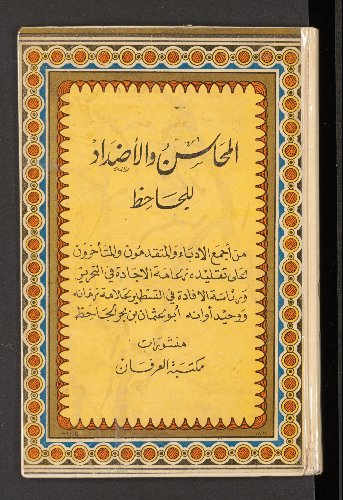 المحاسن والأضداد
للجاحظ
من أجمع الادباء والمتقدمون والمتأخرون
على تقليده زعامة الاجادة في التحرير
ورئاسة الافادة في التسطير علامة زمانه
ووحيد أوانه أبو عثمان بن بحر الجاحظ
منشورات
مكتبة العرفان